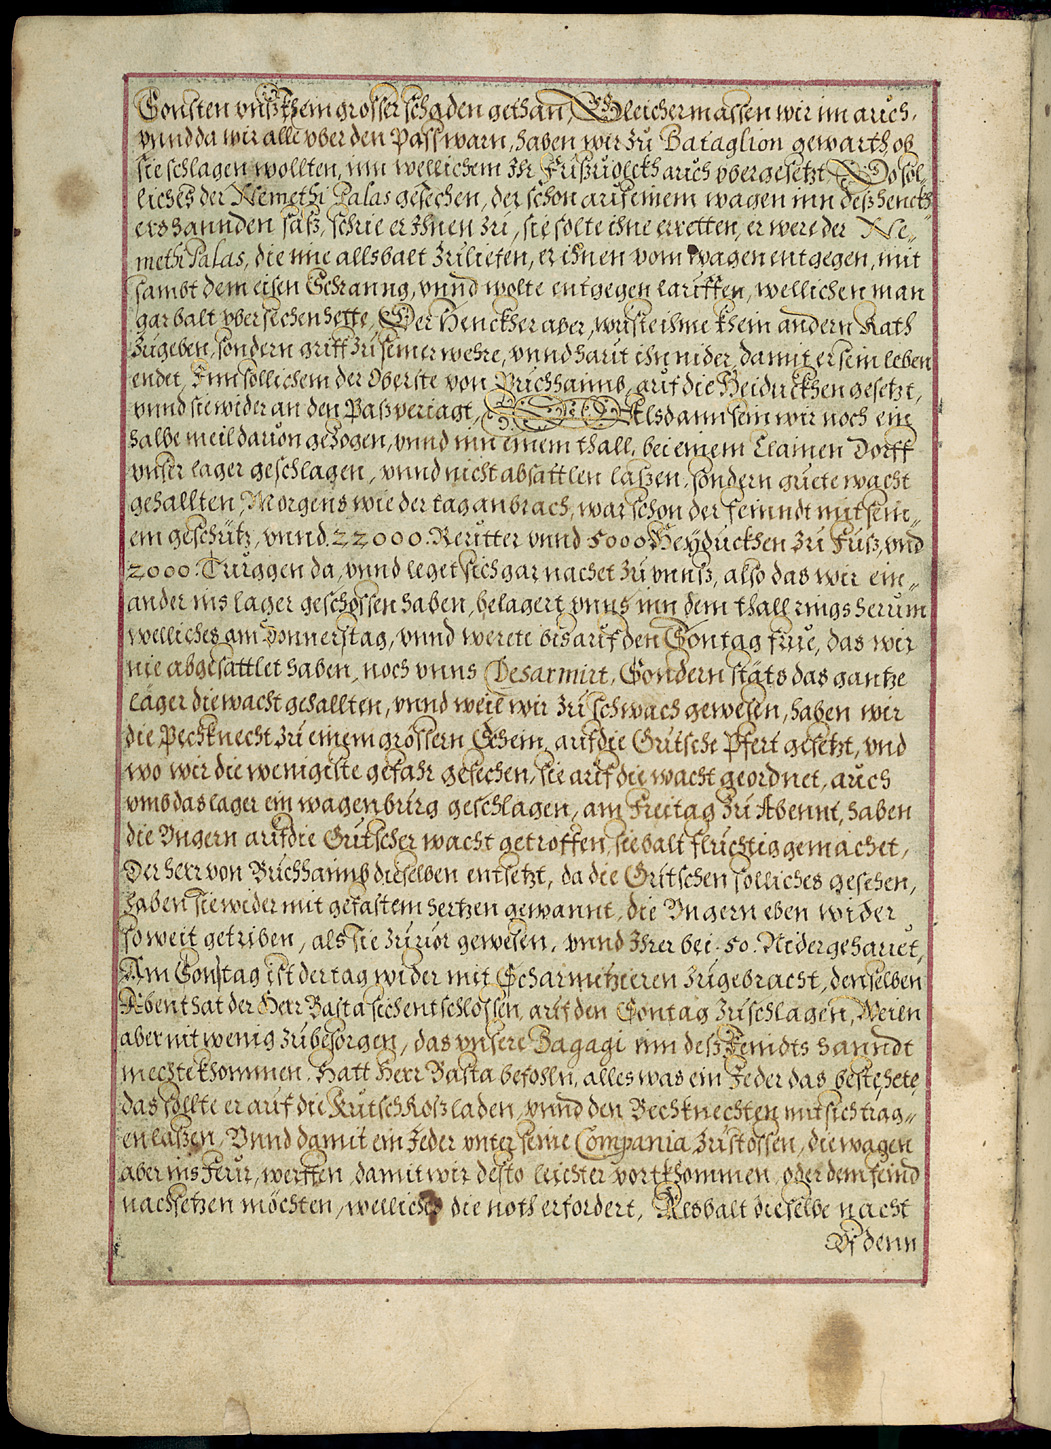 Sonsten vnß khein grosser schaden gethan, Gleichermassen wir im auch,
vnnd da wir alle vber den Pass warn, haben wir zu Bataglion gewarth ob
sie schlagen wollten, inn wellichem Ihr Fußuolckh auch vbergesetzt, Do sol,,
liches der Nemethi Palas gesechen, der schon auf einem wagen inn deß henckh,,
ers hannden saß, schrie er Ihnen zu, sie solte ihne erretten, er were der Ne,,
methi Palas, die nue allsbalt zulieten, er ihnen vom wagen entgegen, mit
sambt dem eisen Schranng, vnnd wolte entgegen lauffen, wellichen man
gar balt vbersechen hette, Der Henckher aber, wuste ihme khein andern Rath
zugeben, sondern griff zu seiner wehre, vnnd haut ihn nider, damit er sein leben
endet, Inn sollichem der Oberste von Buchhaimb, auf die Heiduckhen gesetzt,
vnnd sie wider an den Paß veriagt, Alsdann sein wir noch ein
halbe meil dauon gezogen, vnnd inn einem thall, bei einem Clainen Dorff
vnser lager geschlagen, vnnd nicht absattlen laßen, sondern guete wacht
gehallten, Morgens wie der tag anbrach, war schon der feinndt mit sein,,
em geschütz, vnnd 22000. Reutter vnnd 5000 Heyduckhen zu Fuß, vnd
2000. Türggen da, vnnd leget sich gar nachet zu vnnß, also das wir ein,,
ander ins lager geschossen haben, belagert vnns inn dem thall rings herum
welliches am Donnerstag, vnnd werete bis auf den Sontag frue, das wir
nie abgesattlet haben, noch vnns Desarmirt, Sondern stäts das gantze
läger die wacht gehallten, vnnd weil wir zu schwach gewesen, haben wir
die Pechknecht zu einem grössern Schein, auf die Gutsche Pfert gesetzt, vnd
wo wir die wenigiste gefahr gesechen, sie auf die wacht geordnet, auch
vmb das lager ein wagenburg geschlagen, am Freitag zu Abennt, haben
die Vngern auf die Gutscher wacht getroffen, sie balt fluchtig gemachet,
Der herr von Buchhaimb dieselben entsetzt, da die Gutschen solliches gesehen,
haben sie wider mit gefastem hertzen gewannt, die Vngern eben wider
so weit getriben, als sie zuuor gewesen, vnnd Ihrer bei 50. Nidergehauet,
Am Sonstag ist der tag wider mit Scharmetzieren zugebracht, denselben
Abent hat der Herr Basta sich entschlossen, auf den Sontag zu schlagen, Weilen
aber nit wenig zubesorgen, das vnsere Bagagi inn deß Feindts hanndt
mechte khommen, Hatt Herr Basta befohln, alles was ein Ieder das bestehete
das sollte er auf die KutschRoß laden, vnnd den Bechknechten mit sich trag,,
en laßen, Vnnd damit ein Ieder vnter seine Compania zustossen, die wagen
aber ins Feur, werffen, damit wir desto leichter vortkhommen, oder dem feind
nachsetzen möchten, welliches die noth erfordert, Alsbalt dieselbe nacht
denn